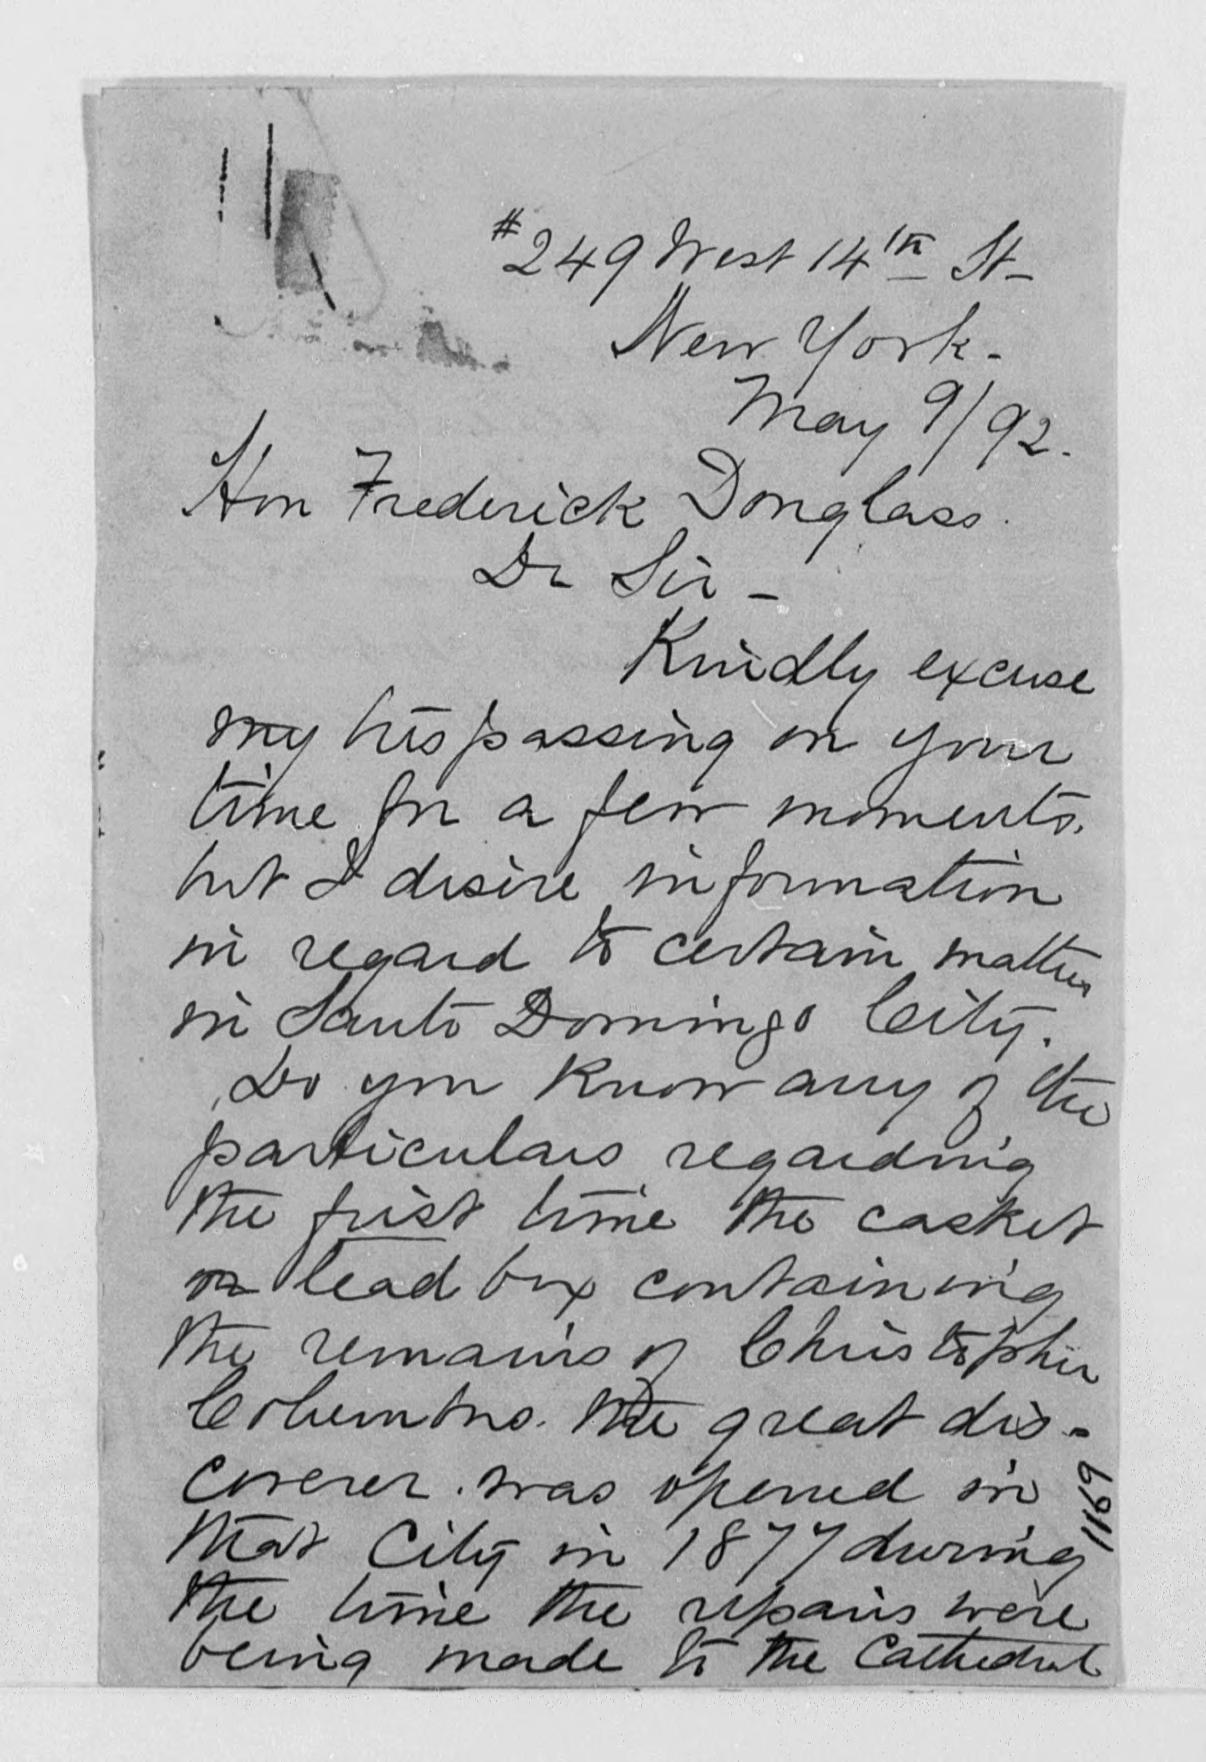 #249 West 14th St-
New York-
May 9/92.
Hon Frederick Douglass.
Dr Sir -
Kindly excuse
my trespassing on your
time for a few moments.
but I desire information
in regard to certain matters
in Santo Domingo City.
Do you know any of the
particulars regarding
the first time the casket
or lead box containing
the remains of Christopher
Columbus. the great dis-
coverer. was opened in
that City in 1877 during
the time the repairs were
being made to the Cathedral
1169